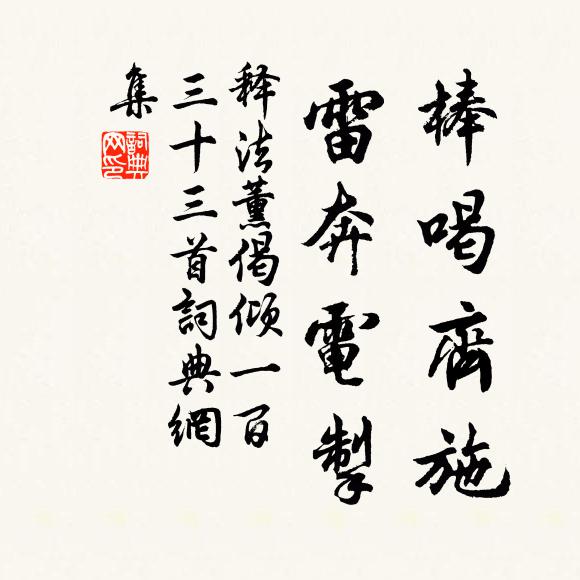 棒喝齊施
雷奔電掣
释法薰偈倾一百
三十三首詞典網
集
詞典
网印